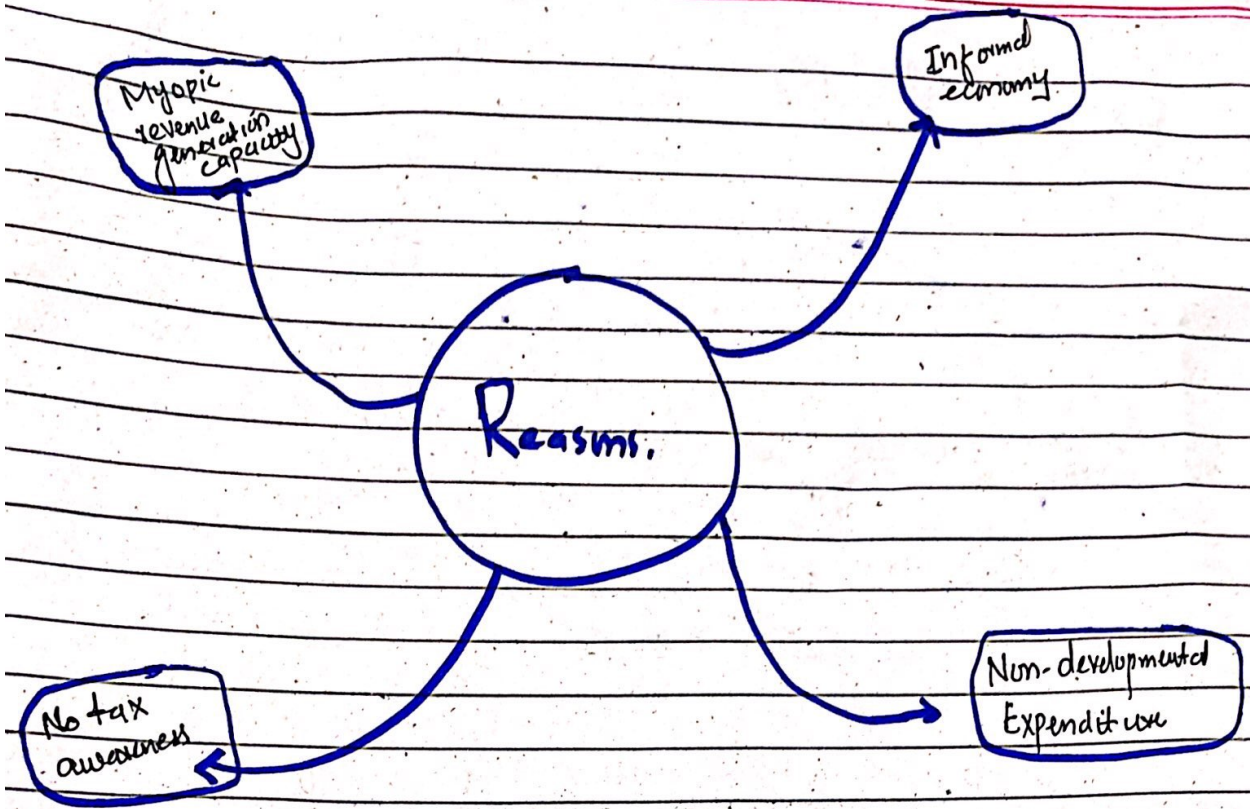 Myopic
revenue
generation
capacity
Informal
economy.
Reasons.
No tax
awareness
Non-developmental
Expenditure